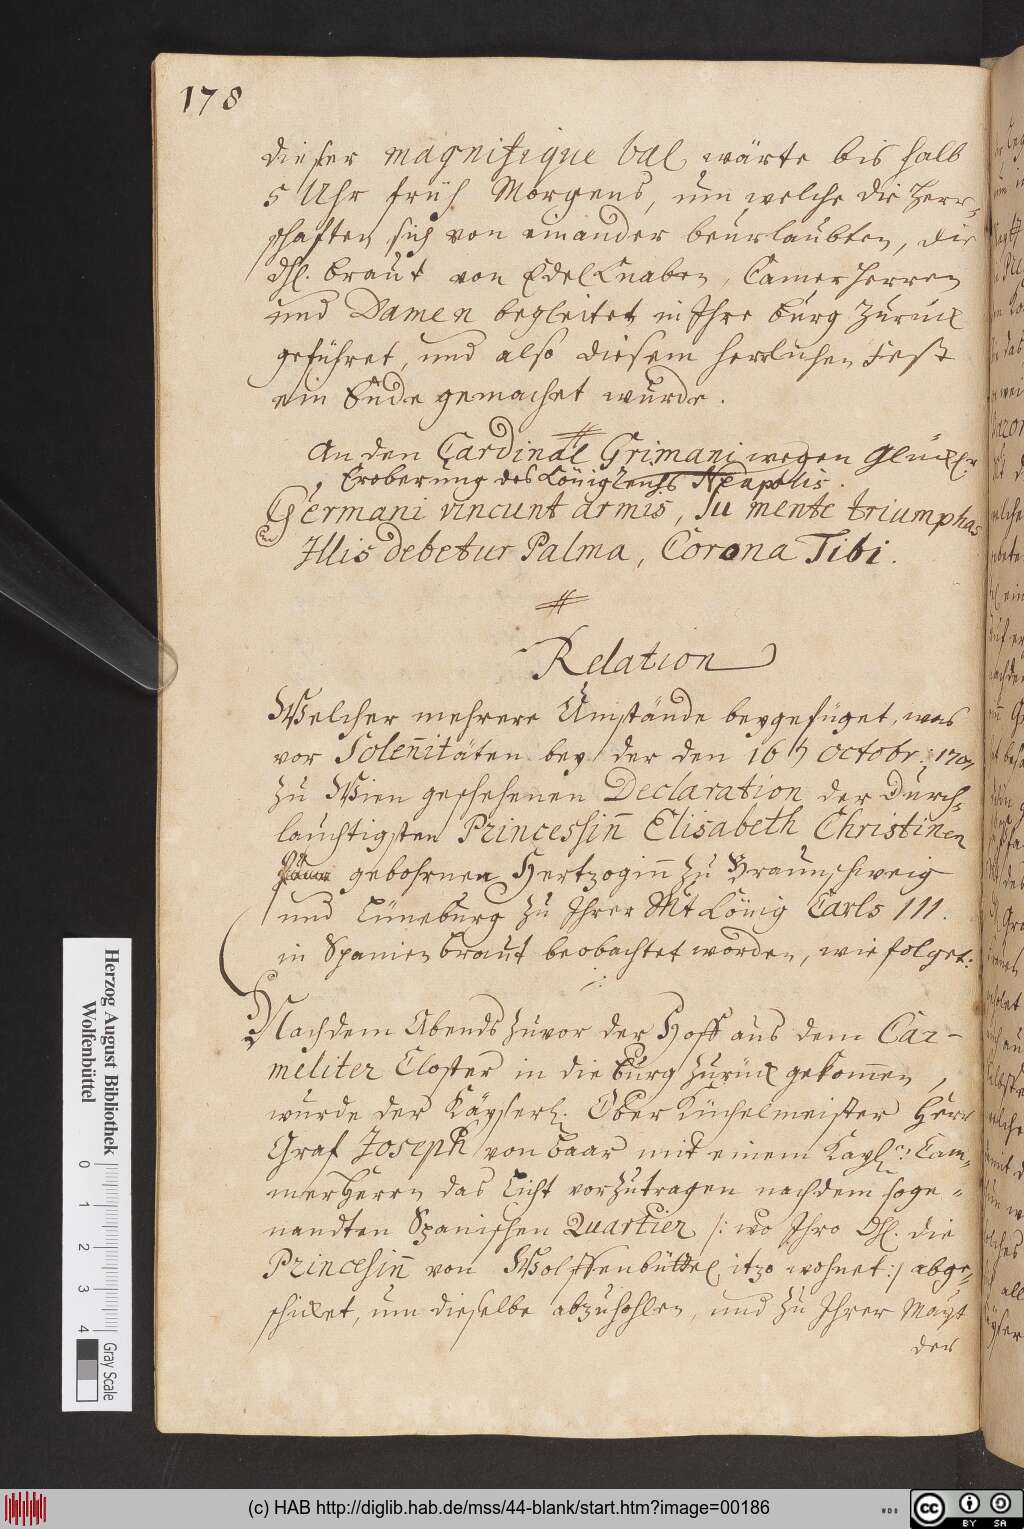 178
dieser magnifique bal wärte bis halb
5 Uhr früh Morgens, um welche die Herr-
schafften sich von einander beurlaubten, die
dhl. braut von Edel Knaben, Camerherren
und Damen begleitet in Ihre burg zurück
geführet, und also diesem herrlichen Fest
ein Ende gemachet wurde.
An den Cardinal Grimani wegen Glückl.
Eroberung des Königreichs Neapolis.
Germani vincunt armis, Tu mente triumphas
Illis debetur Palma, Corona Tibi.
Relation
Welcher mehrere Umstände beygefüget, was
vor Solennitäten bey der den 16 octobr: 1707
zu Wien geschehenen Declaration der Durch-
lauchtigsten Princessin Elisabeth Christinen
gebohrnen Hertzogin zu Braunschweig
und Lüneburg zu Ihrer Mt König Carls III.
in Spanien braut beobachtet worden, wie folget:
Nachdem Abends zuvor der Hoff aus dem Car-
meliter Closter in die burg zurück gekommen,
wurde der Käyserl. Ober Küchelmeister Herr
Graf Joseph von Paar mit einem Kayl. Cam-
merHerrn das Licht vorzutragen nachdem soge-
nandten Spanischen Quartier /: wo Ihro Dhl. die
Princesin von Wolffenbüttel itzo wohnet :/ abge-
schicket, um dieselbe abzuhohlen, und zu Ihrer Mayt
der
Herzog August Bibliothek
Wolfenbüttel
0 1 2 3 4
Gray Scale
(c) HAB http://diglib.hab.de/mss/44-blank/start.htm?image=00186
WDB
cc BY SA